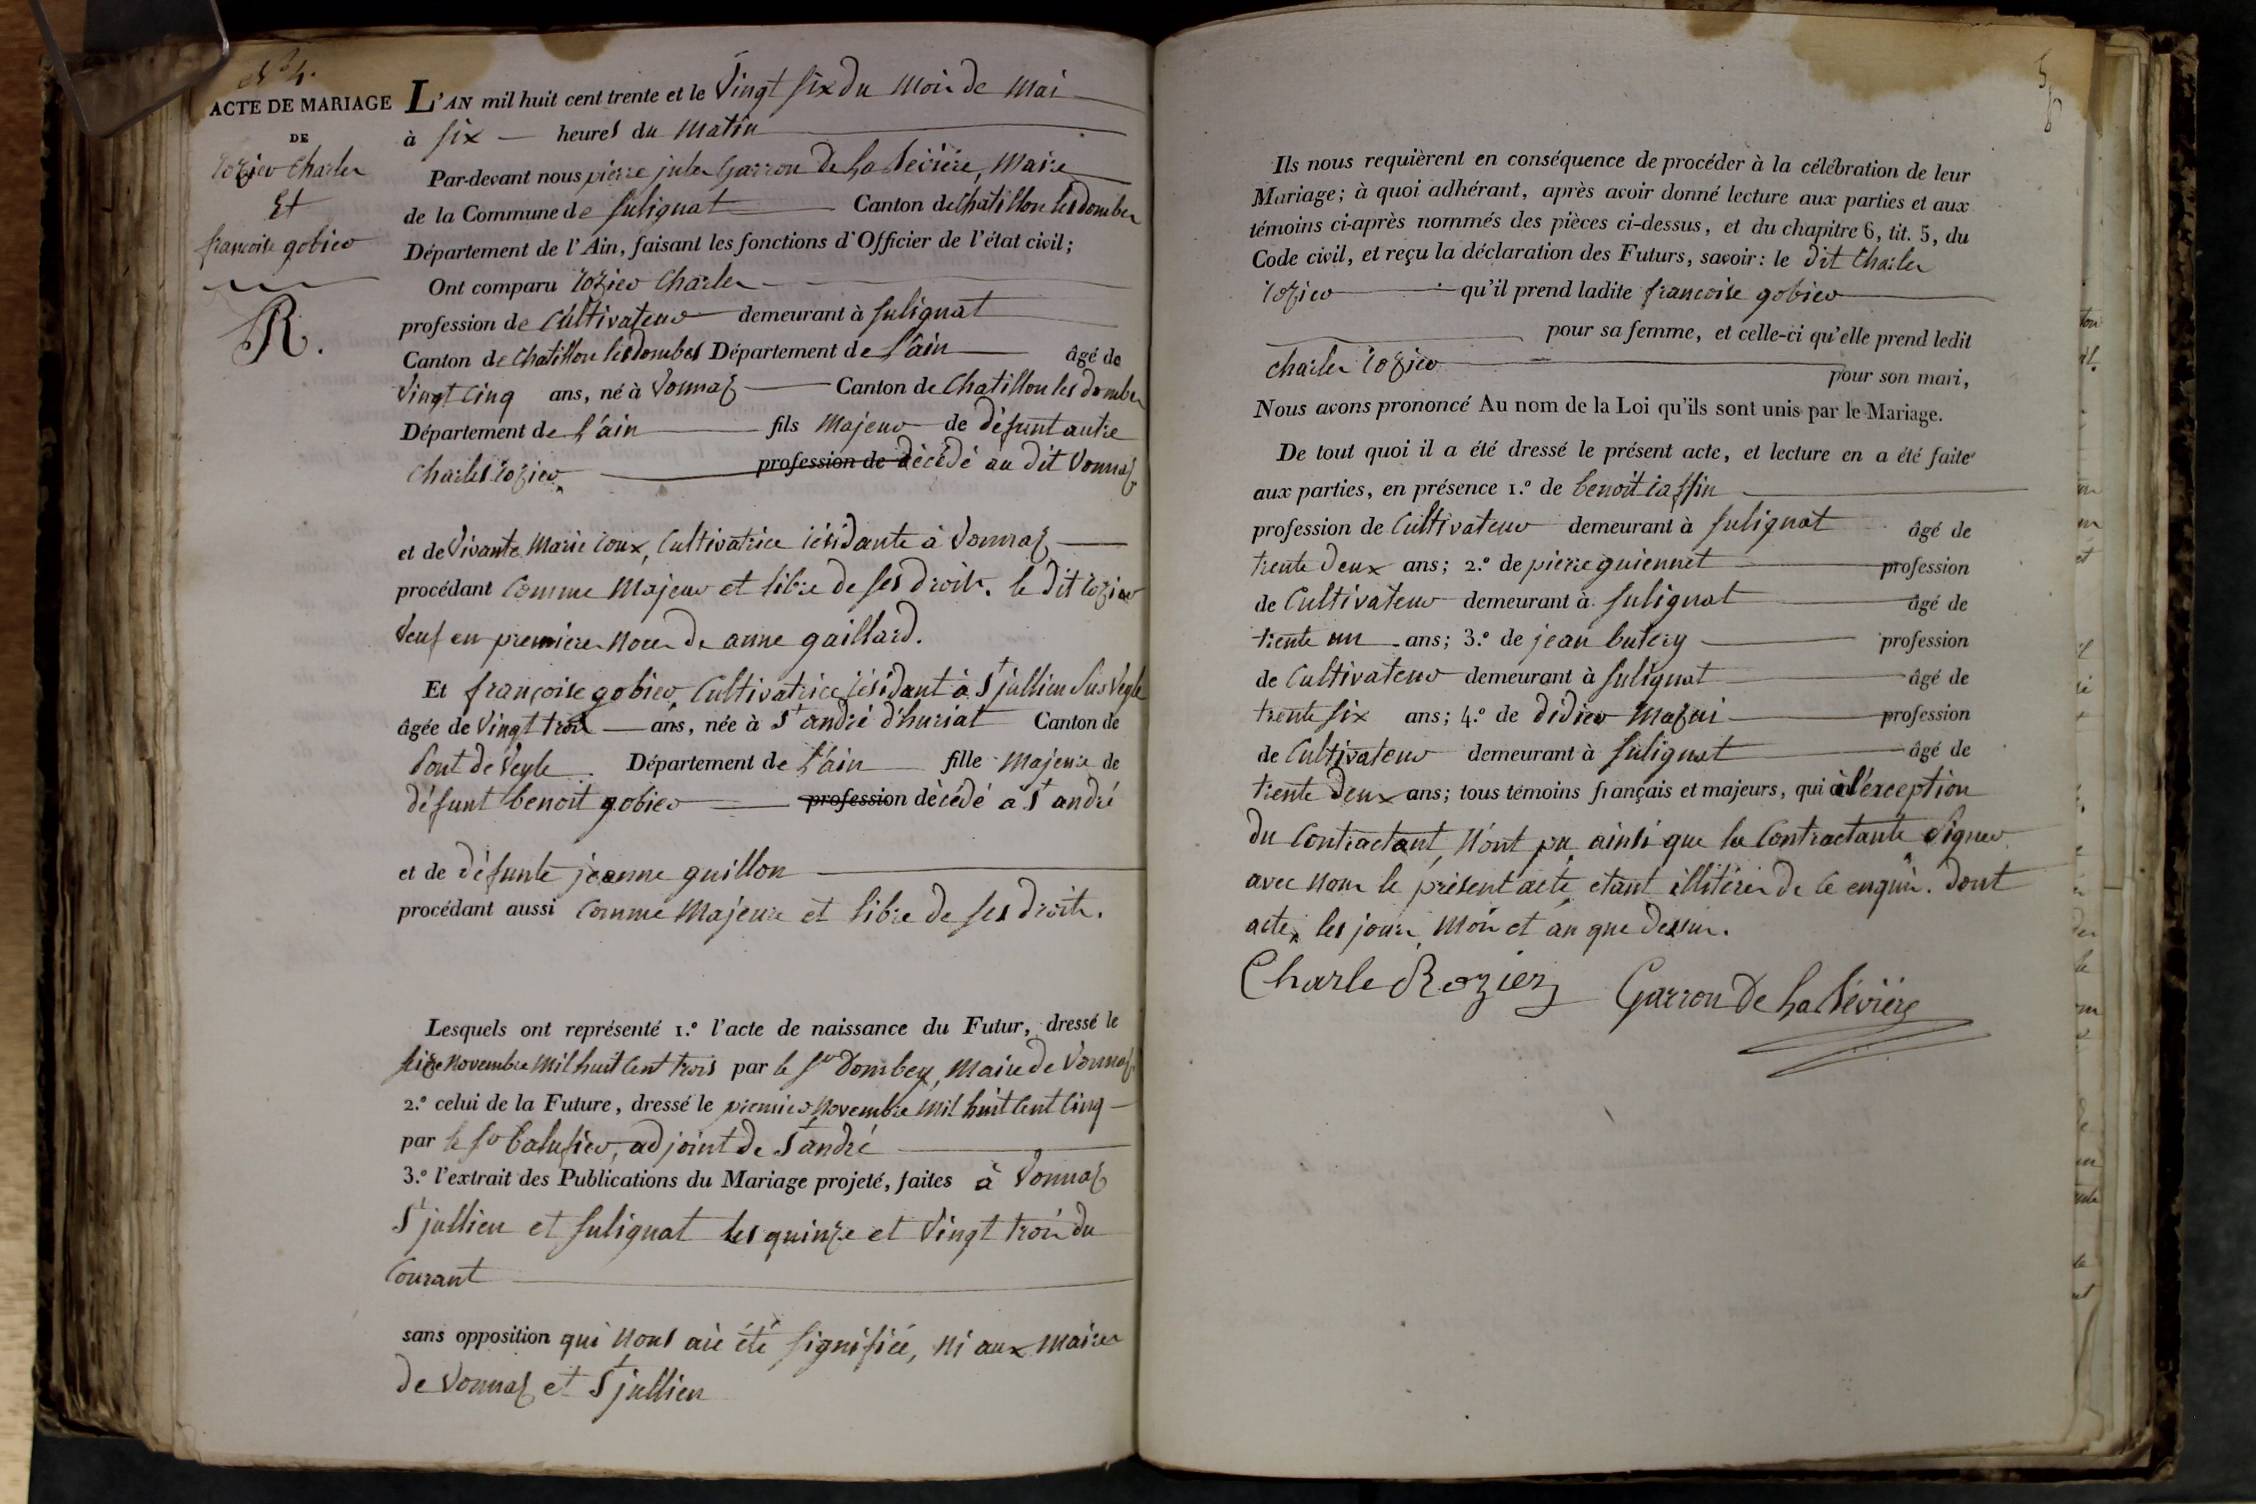 N° 4.
ACTE DE MARIAGE
DE
rozier Charles
Et
francoise gobier
R.
L'AN mil huit cent trente et le Vingt six du mois de mai
à six heures du matin
Par-devant nous pierre jules Garron de La Bévière, Maire
de la Commune de Sulignat Canton de Chatillon les dombes
Département de l'Ain, faisant les fonctions d'Officier de l'état civil;
Ont comparu rozier Charles
profession de Cultivateur demeurant à Sulignat
Canton de Chatillon les dombes Département de L'ain âgé de
Vingt Cinq ans, né à Vonnaz Canton de Chatillon les dombes
Département de L'ain fils Majeur de défunt autre
Charles rozier profession de décédé au dit Vonnaz
et de Vivante Marie roux, Cultivatrice résidante à Vonnaz
procédant Comme Majeur et libre de ses droits. le dit rozier
Veuf en premieres noces de anne gaillard.
Et françoise gobier, Cultivatrice résidant à St jullien Sur Veyle
âgée de Vingt trois ans, née à St andré d'huriat Canton de
Pont de Veyle Département de L'ain fille Majeure de
défunt benoit gobier profession décédé à St andré
et de défunte jeanne guillon
procédant aussi Comme Majeure et libre de ses droits.
Lesquels ont représenté 1.° l'acte de naissance du Futur, dressé le
seize Novembre Mil huit Cent trois par le Sr Dombey, Maire de Vonnaz
2.° celui de la Future, dressé le premier Novembre Mil huit Cent Cinq
par le Sr balufier, adjoint de St andré
3.° l'extrait des Publications du Mariage projeté, faites à Vonnaz
St jullien et Sulignat les quinze et Vingt trois du
Courant
sans opposition qui nous aie été signifiée, ni aux maires
de Vonnaz et St jullien
Ils nous requièrent en conséquence de procéder à la célébration de leur
Mariage; à quoi adhérant, après avoir donné lecture aux parties et aux
témoins ci-après nommés des pièces ci-dessus, et du chapitre 6, tit. 5, du
Code civil, et reçu la déclaration des Futurs, savoir: le dit Charles
rozier qu'il prend ladite francoise gobier
pour sa femme, et celle-ci qu'elle prend ledit
charles rozier pour son mari,
Nous avons prononcé Au nom de la Loi qu'ils sont unis par le Mariage.
De tout quoi il a été dressé le présent acte, et lecture en a été faite
aux parties, en présence 1.° de benoit raffin
profession de Cultivateur demeurant à Sulignat âgé de
trente deux ans; 2.° de pierre guiennet profession
de Cultivateur demeurant à Sulignat âgé de
trente un ans; 3.° de jean butery profession
de Cultivateur demeurant à Sulignat âgé de
trente six ans; 4.° de didier Mazui profession
de Cultivateur demeurant à Sulignat âgé de
trente deux ans; tous témoins français et majeurs, qui à l'éxception
du Contractant, N'ont pu, ainsi que la Contractante Signer
avec nous le présent acte, etant illitérés de ce enquis. Dont
acte, les jour, Mois et an que dessus.
Charle Rozier Garron de La Bévière